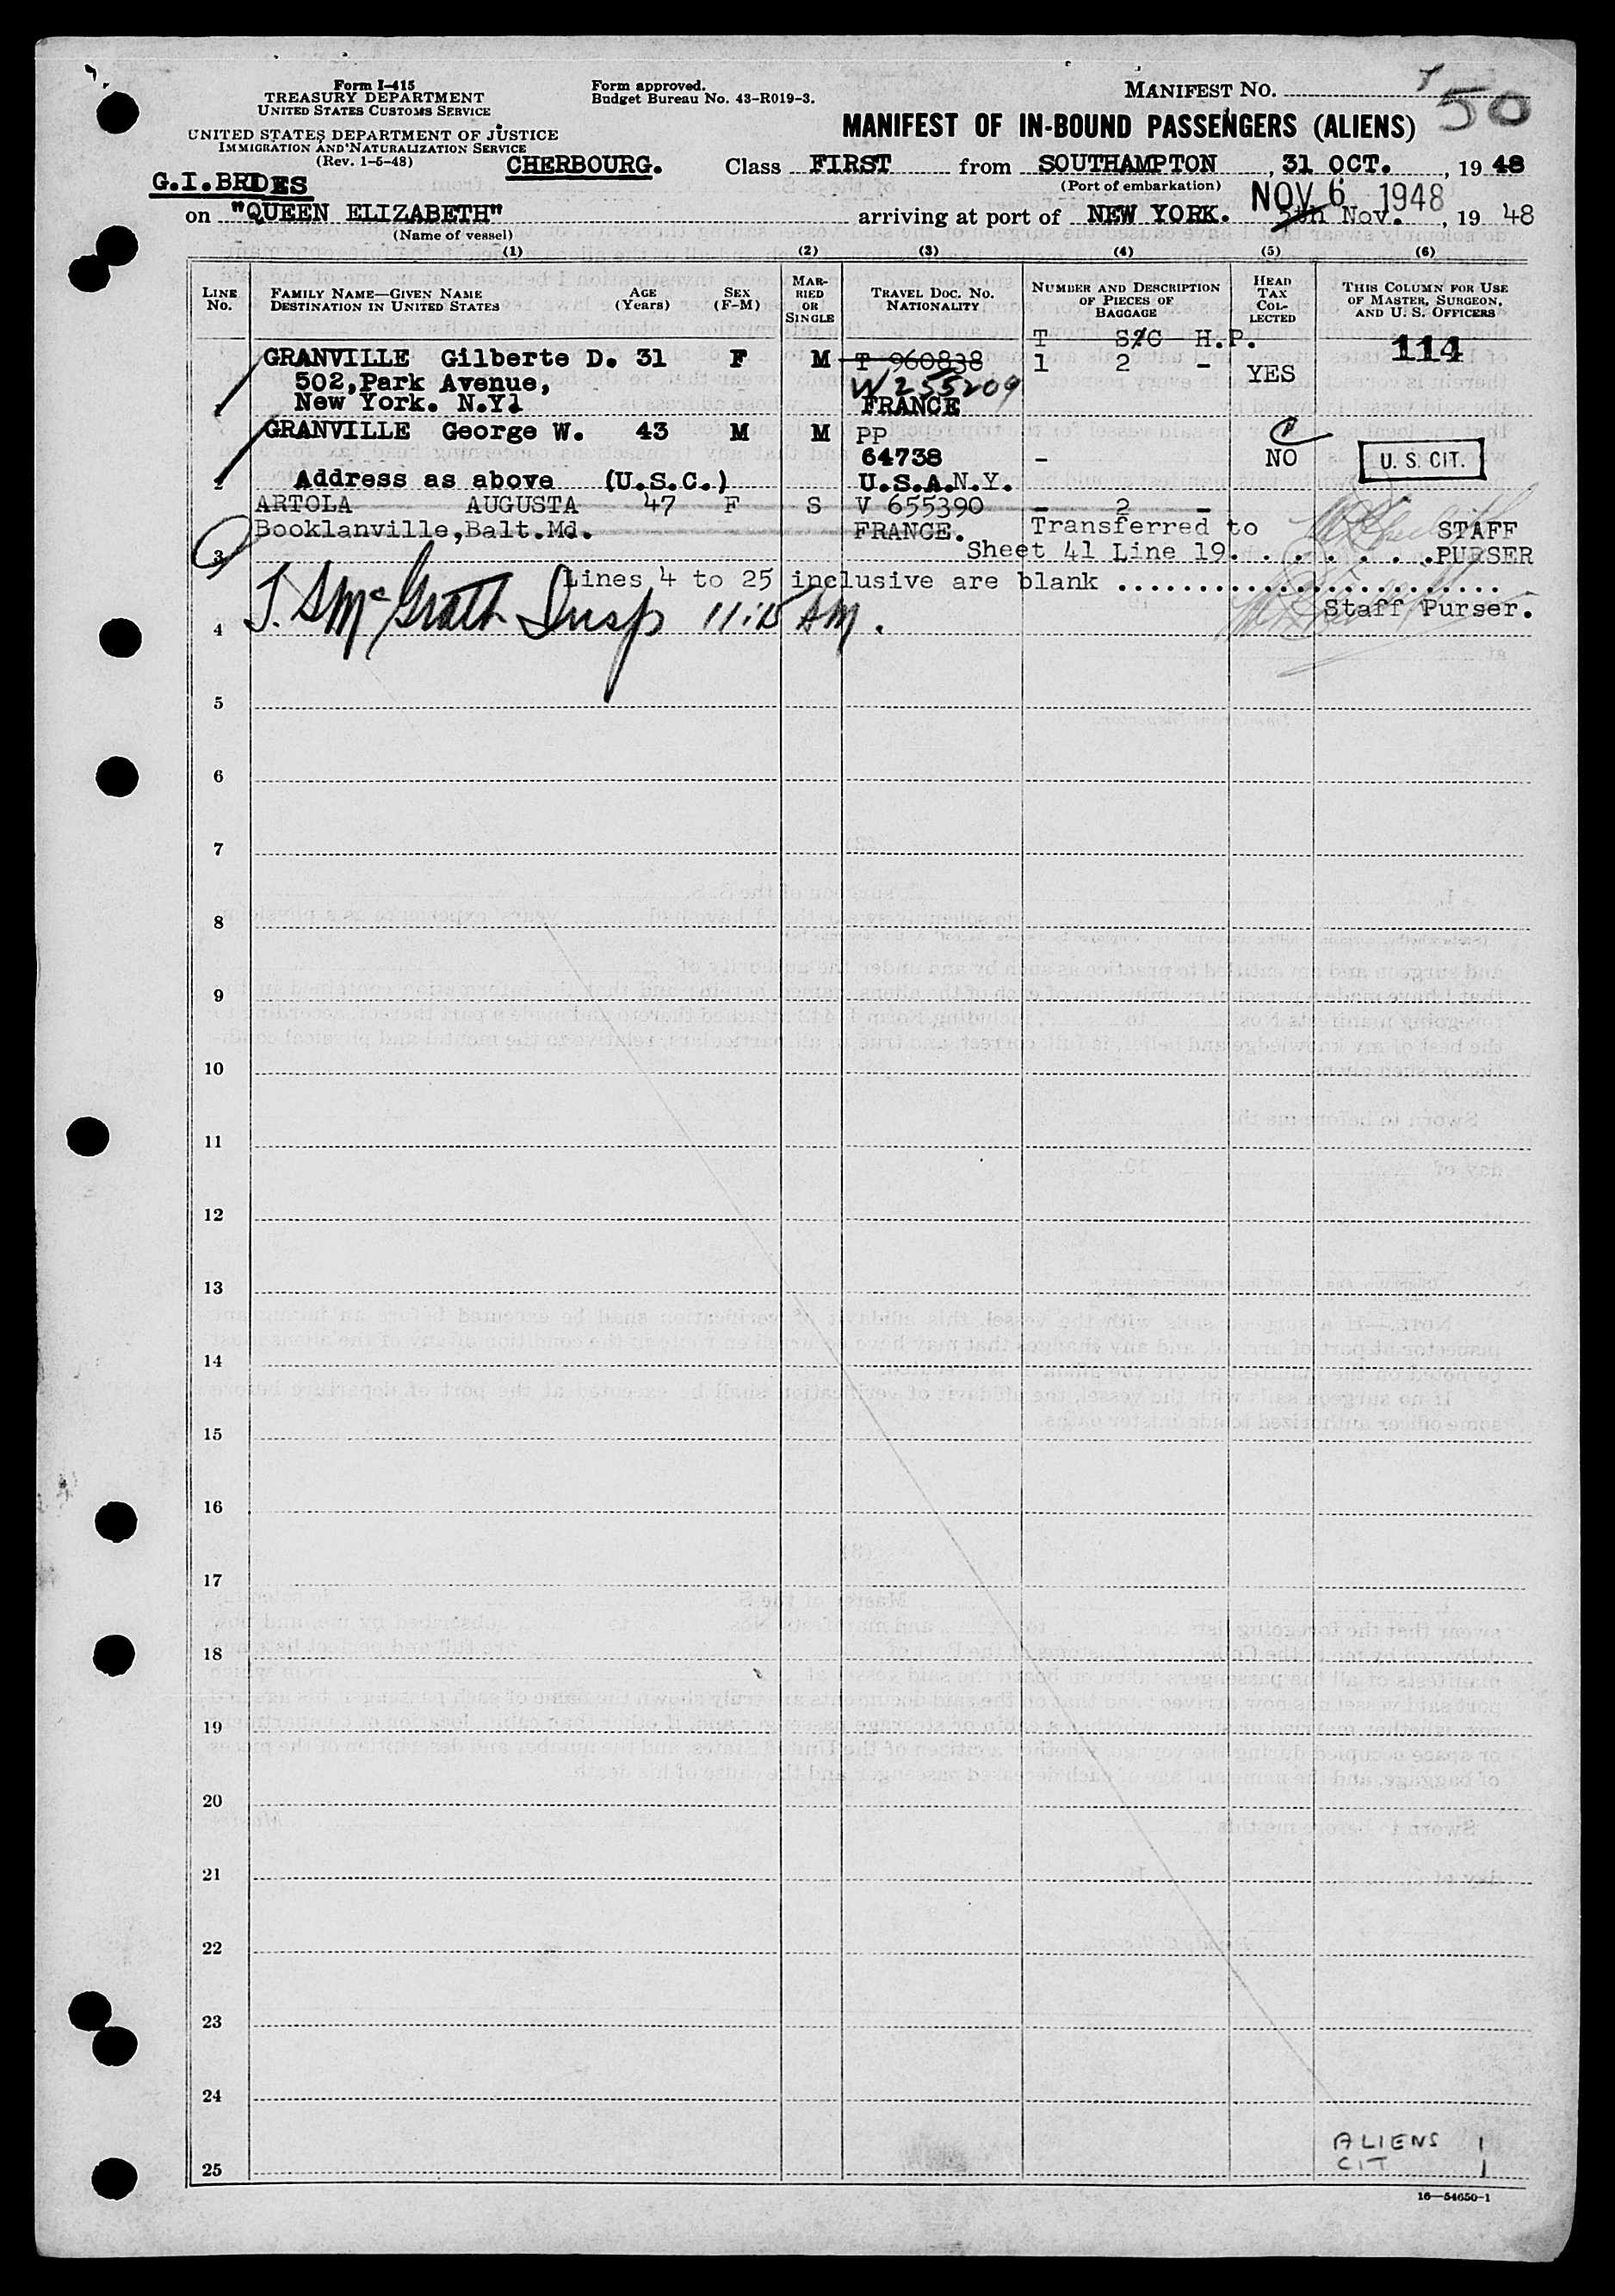 Form I-415
TREASURY DEPARTMENT
UNITED STATES CUSTOMS SERVICE
UNITED STATES DEPARTMENT OF JUSTICE
IMMIGRATION AND NATURALIZATION SERVICE
(Rev. 1-5-48)
Form approved.
Budget Bureau No. 43-R019-3.
MANIFEST NO.
50
MANIFEST OF IN-BOUND PASSENGERS (ALIENS)
CHERBOURG. Class FIRST from SOUTHAMPTON, 31 OCT., 1948
(Port of embarkation)
G.I.BRIDES
NOV 6 1948
on "QUEEN ELIZABETH" arriving at port of NEW YORK. 5th Nov., 1948
(Name of vessel)
(1) (2) (3) (4) (5) (6)
LINE No.
FAMILY NAME—GIVEN NAME
DESTINATION IN UNITED STATES
AGE (Years)
SEX (F-M)
MARRIED OR SINGLE
TRAVEL DOC. NO.
NATIONALITY
NUMBER AND DESCRIPTION OF PIECES OF BAGGAGE
HEAD TAX COLLECTED
THIS COLUMN FOR USE OF MASTER, SURGEON, AND U. S. OFFICERS
T S/C H.P.
114
GRANVILLE Gilberte D. 31 F M T 960838 1 2 - YES
502,Park Avenue, W255209
New York. N.Y. FRANCE
GRANVILLE George W. 43 M M PP
64738 - NO U. S. CIT.
2 Address as above (U.S.C.) U.S.A.N.Y.
ARTOLA AUGUSTA 47 F S V 655390 - 2 -
Booklanville,Balt.Md. FRANCE. Transferred to STAFF
3 Sheet 41 Line 19. . . . . . . . PURSER
Lines 4 to 25 inclusive are blank ........................
Staff Purser.
4 J. S McGrath Insp 11:15 AM.
5
6
7
8
9
10
11
12
13
14
15
16
17
18
19
20
21
22
23
24
ALIENS 1
CIT 1
25
16—54650-1